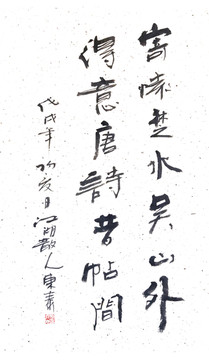 寄懷楚水吳山外
得意唐詩晉帖間
戊戌年初夏日江湖散人東